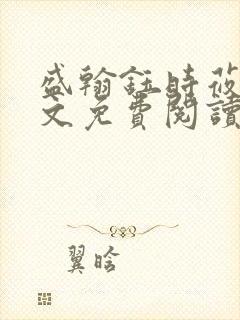 盛翰鈺時莜
文免費閱讀
翼晗